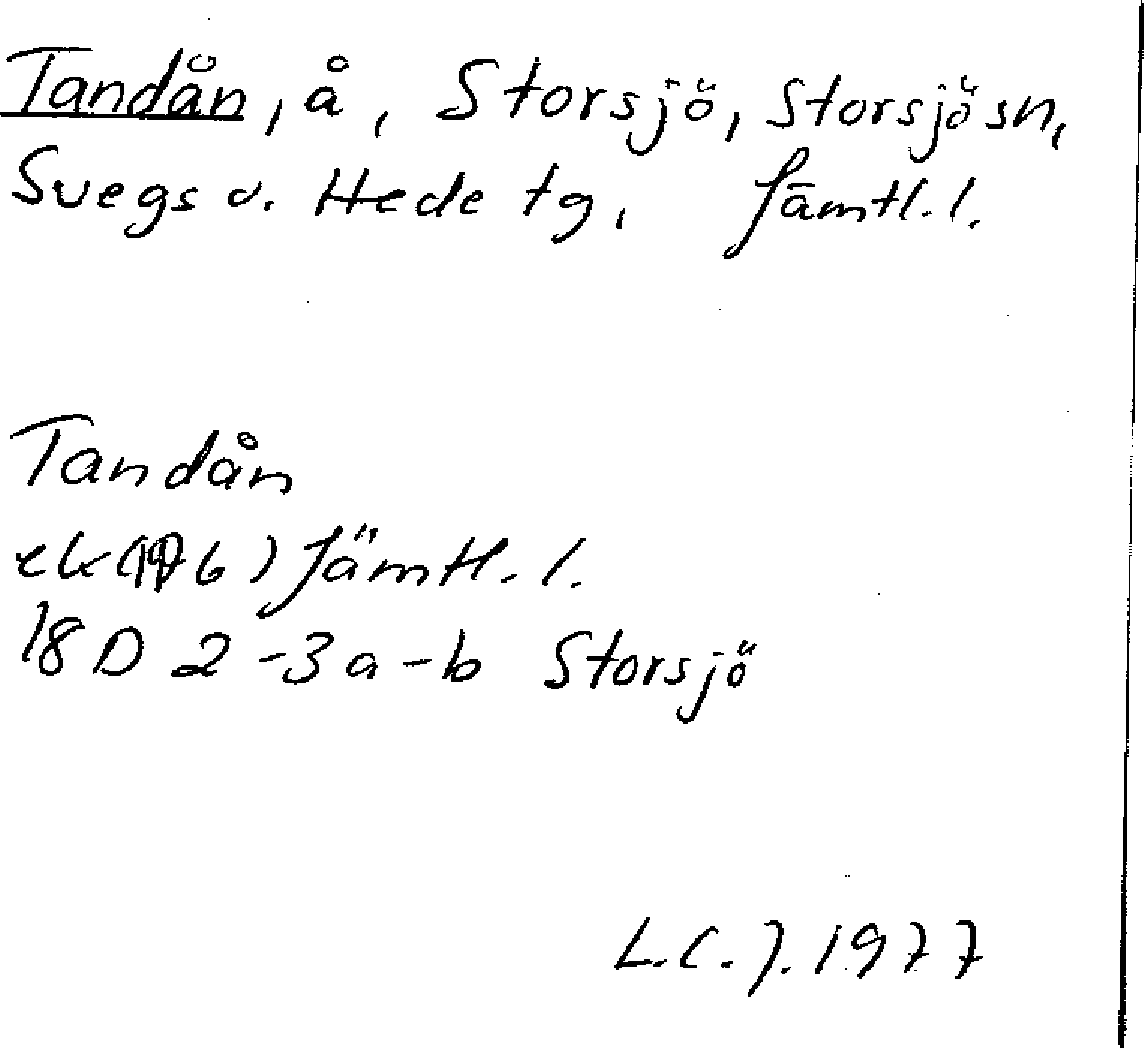 Tandån, å, Storsjö, Storsjö sn,
Svegs o. Hede tg, Jämtl. l.
Tandån
ek Jämtl. l.
18D 2-3a-b Storsjö
L.C.J. 1977